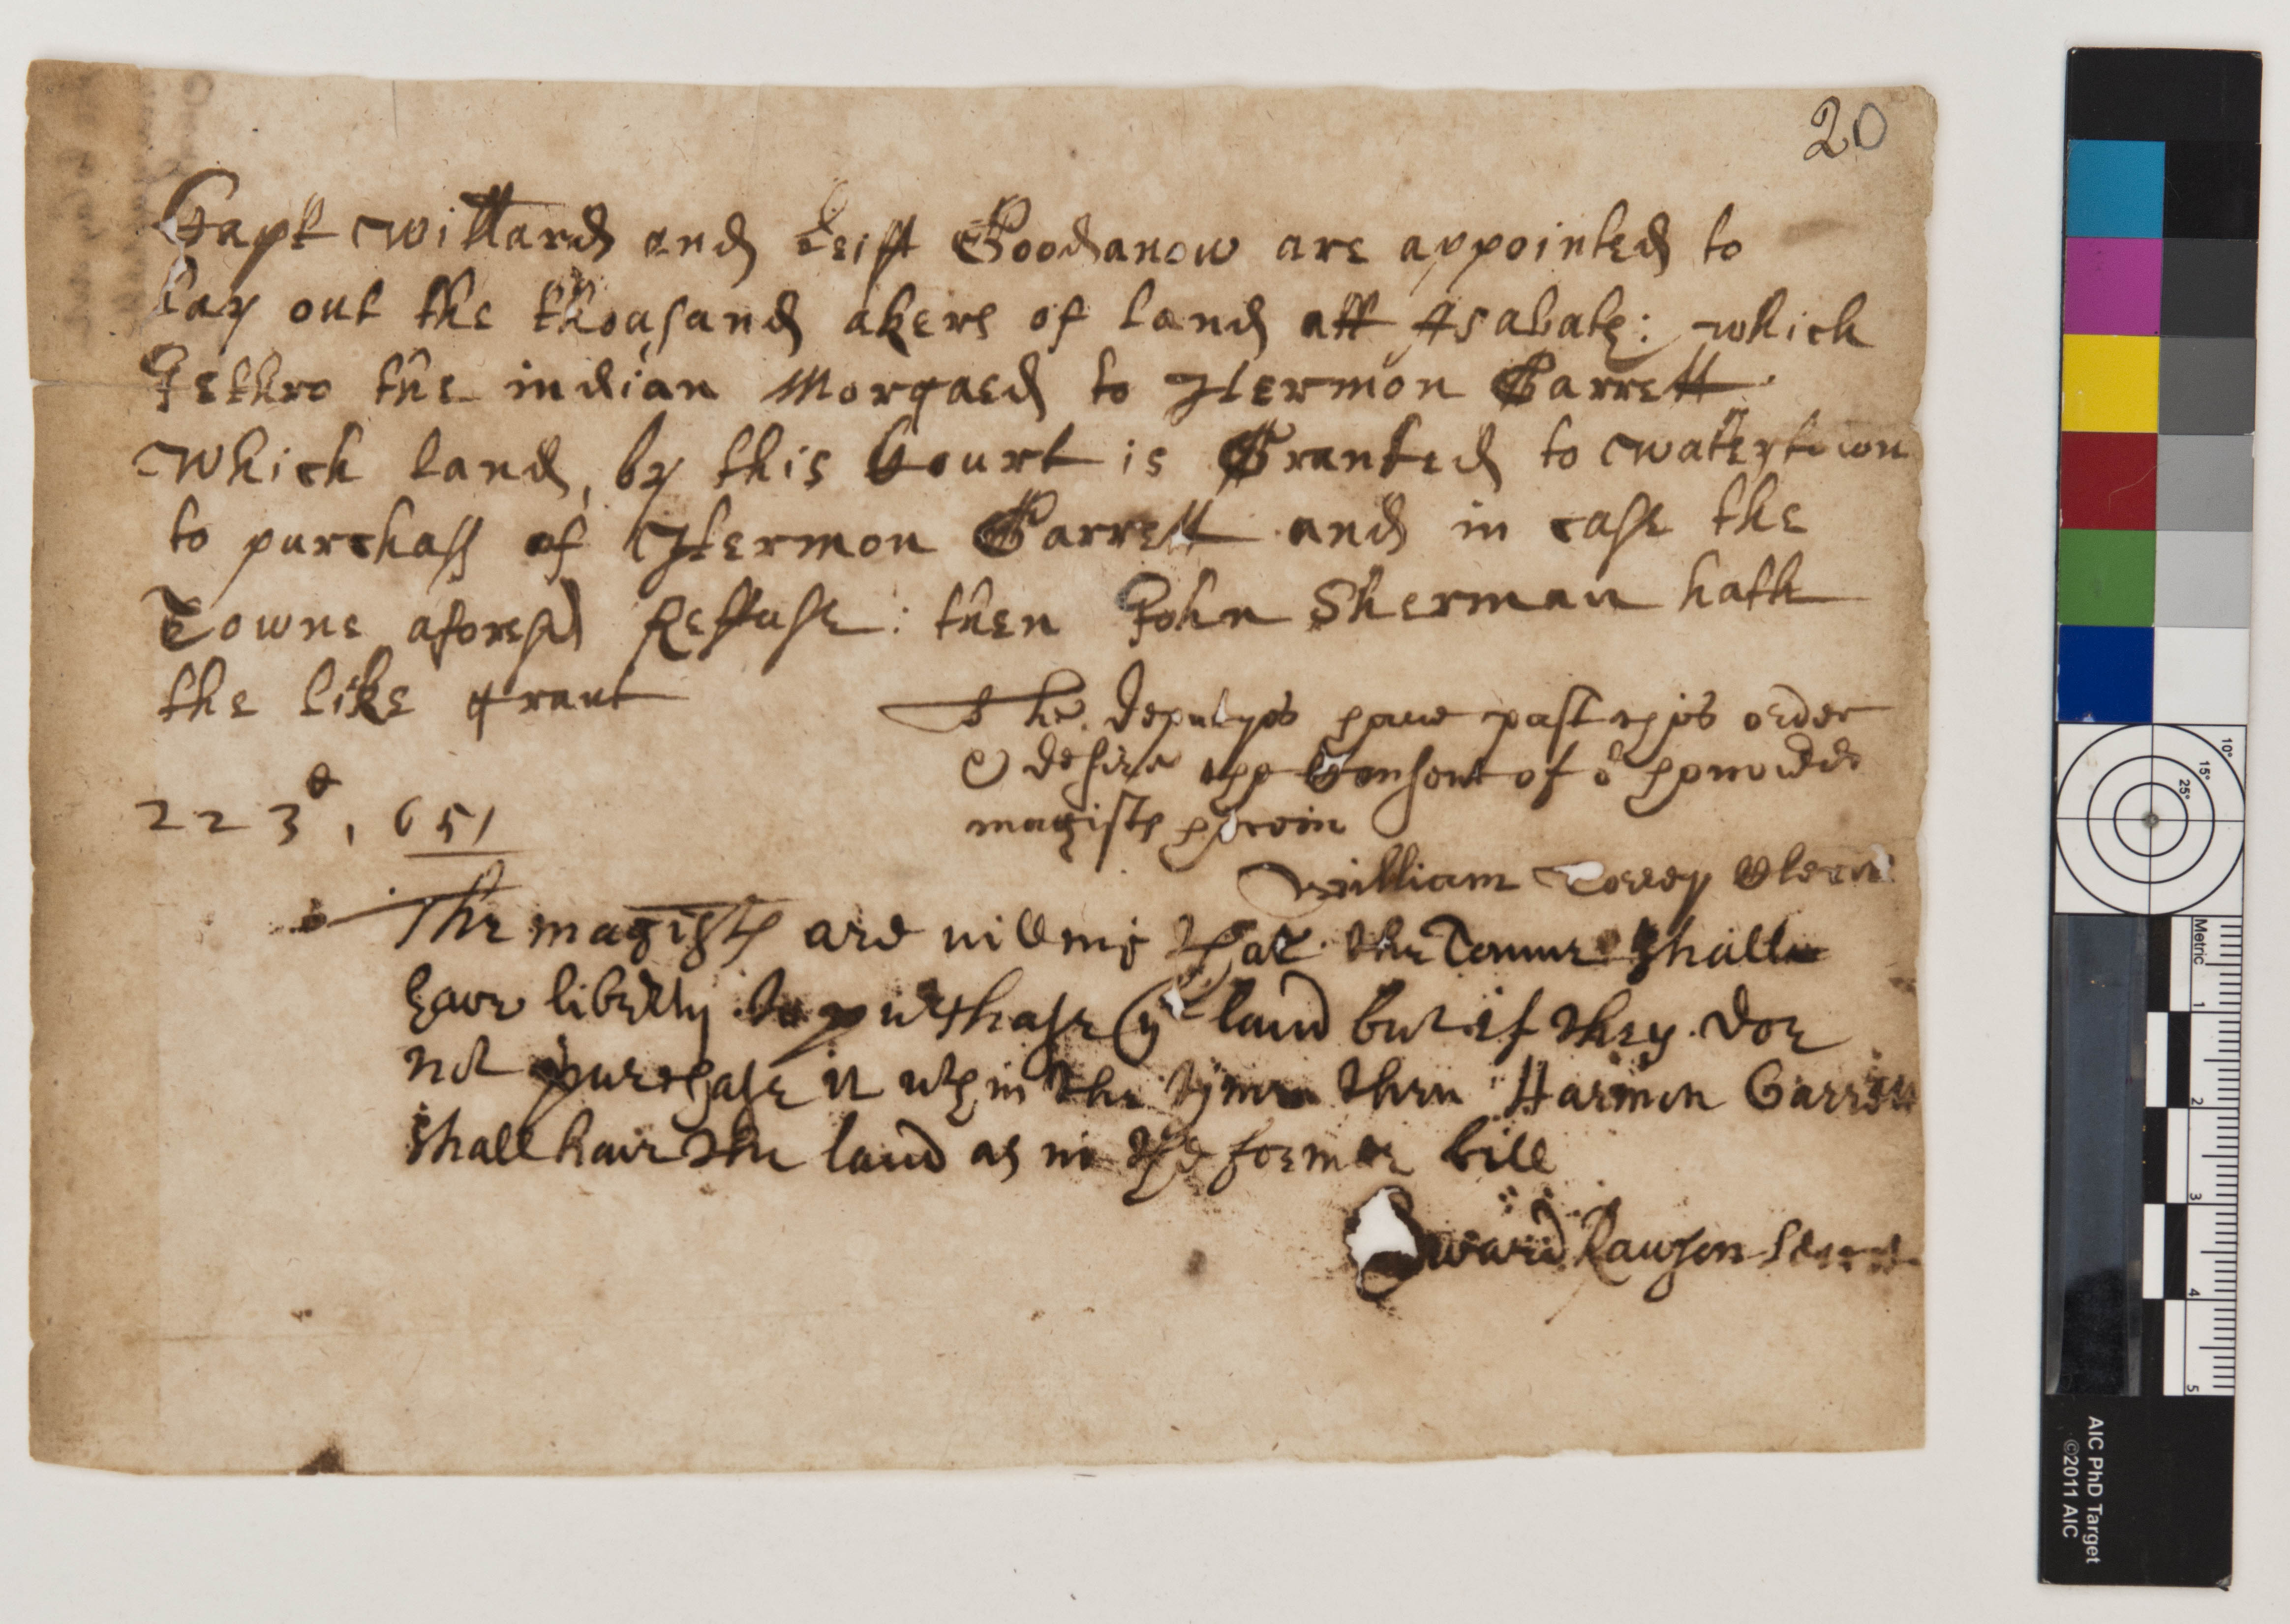 20
Capt Willard and Leift Goodanow are appointed to
lay out the thousand akers of land att Asabate: which
Jethro the indian Morgaed to Hermon Garrett
which land, by this Court is Granted to watertown
to purchass of Hermon Garrett and in case the
Towne aforesd Reffuse: then John Sherman hath
the like grant
The Deputyes haue past this order
& desire the Consent of or honord
magists herein
22 3d, 651
William Torrey Cleric
The magists are willing that the Towne shall
have liberty to purchase ye land but if they doe
not purchase it wthin the tyme then Harmon Garrett
shall have the land as in the former bill
Edward Rawson Secret
Metric
1
2
3
4
5
10°
15°
25°
AIC PhD Target
©2011 AIC